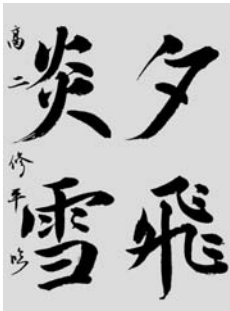 夕飛
炎雪
高二 修平 臨